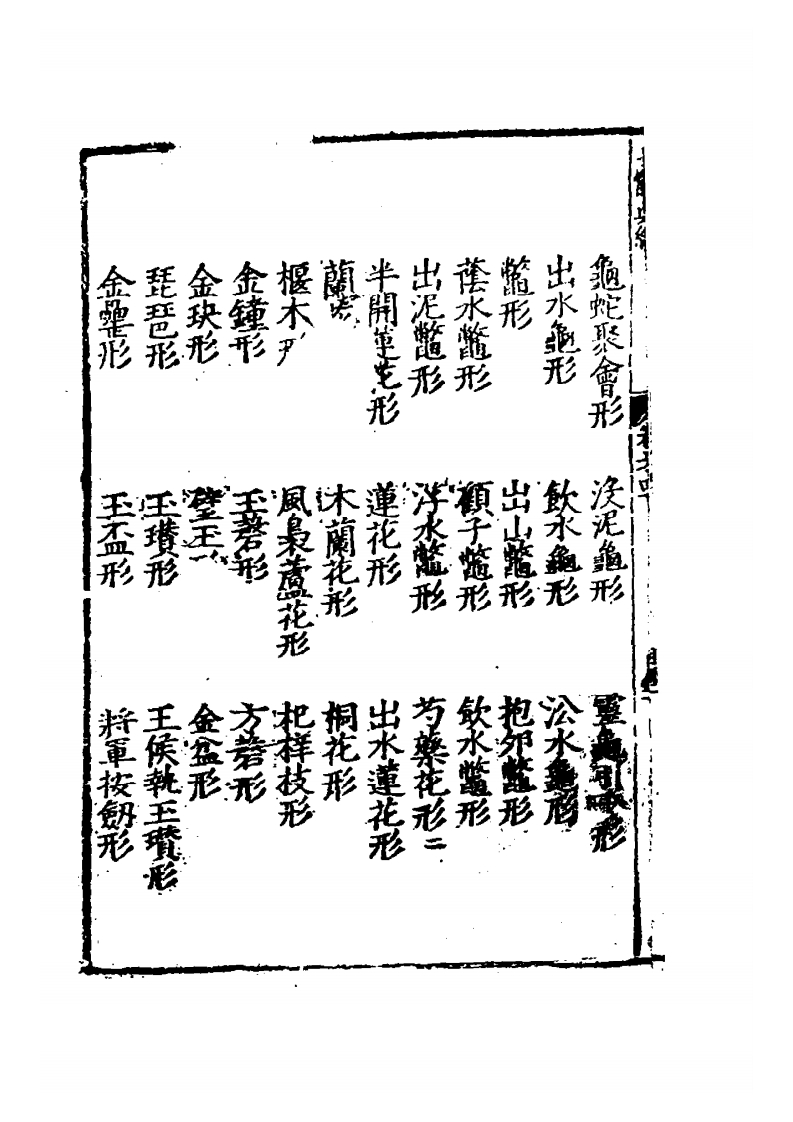 龜蛇聚會形　沒泥龜形　靈龜形
出水龜形　飲水龜形　㳂水龜形
鱉形　出山鱉形　抱卵鱉形
蔭水鱉形　顧子鱉形　飲水鱉形
出泥鱉形　浮水鱉形　芍藥花形二
半開蓮花形　蓮花形　出水蓮花形
蘭　木蘭花形　桐花形
木　風裊蘆花形　杷樣枝形
金鐘形　玉磬形　方磬形
金玦形　璧玉　金盆形
琵琶形　玉瓚形　王侯執玉瓚形
金罍形　玉盃形　將軍按劒形